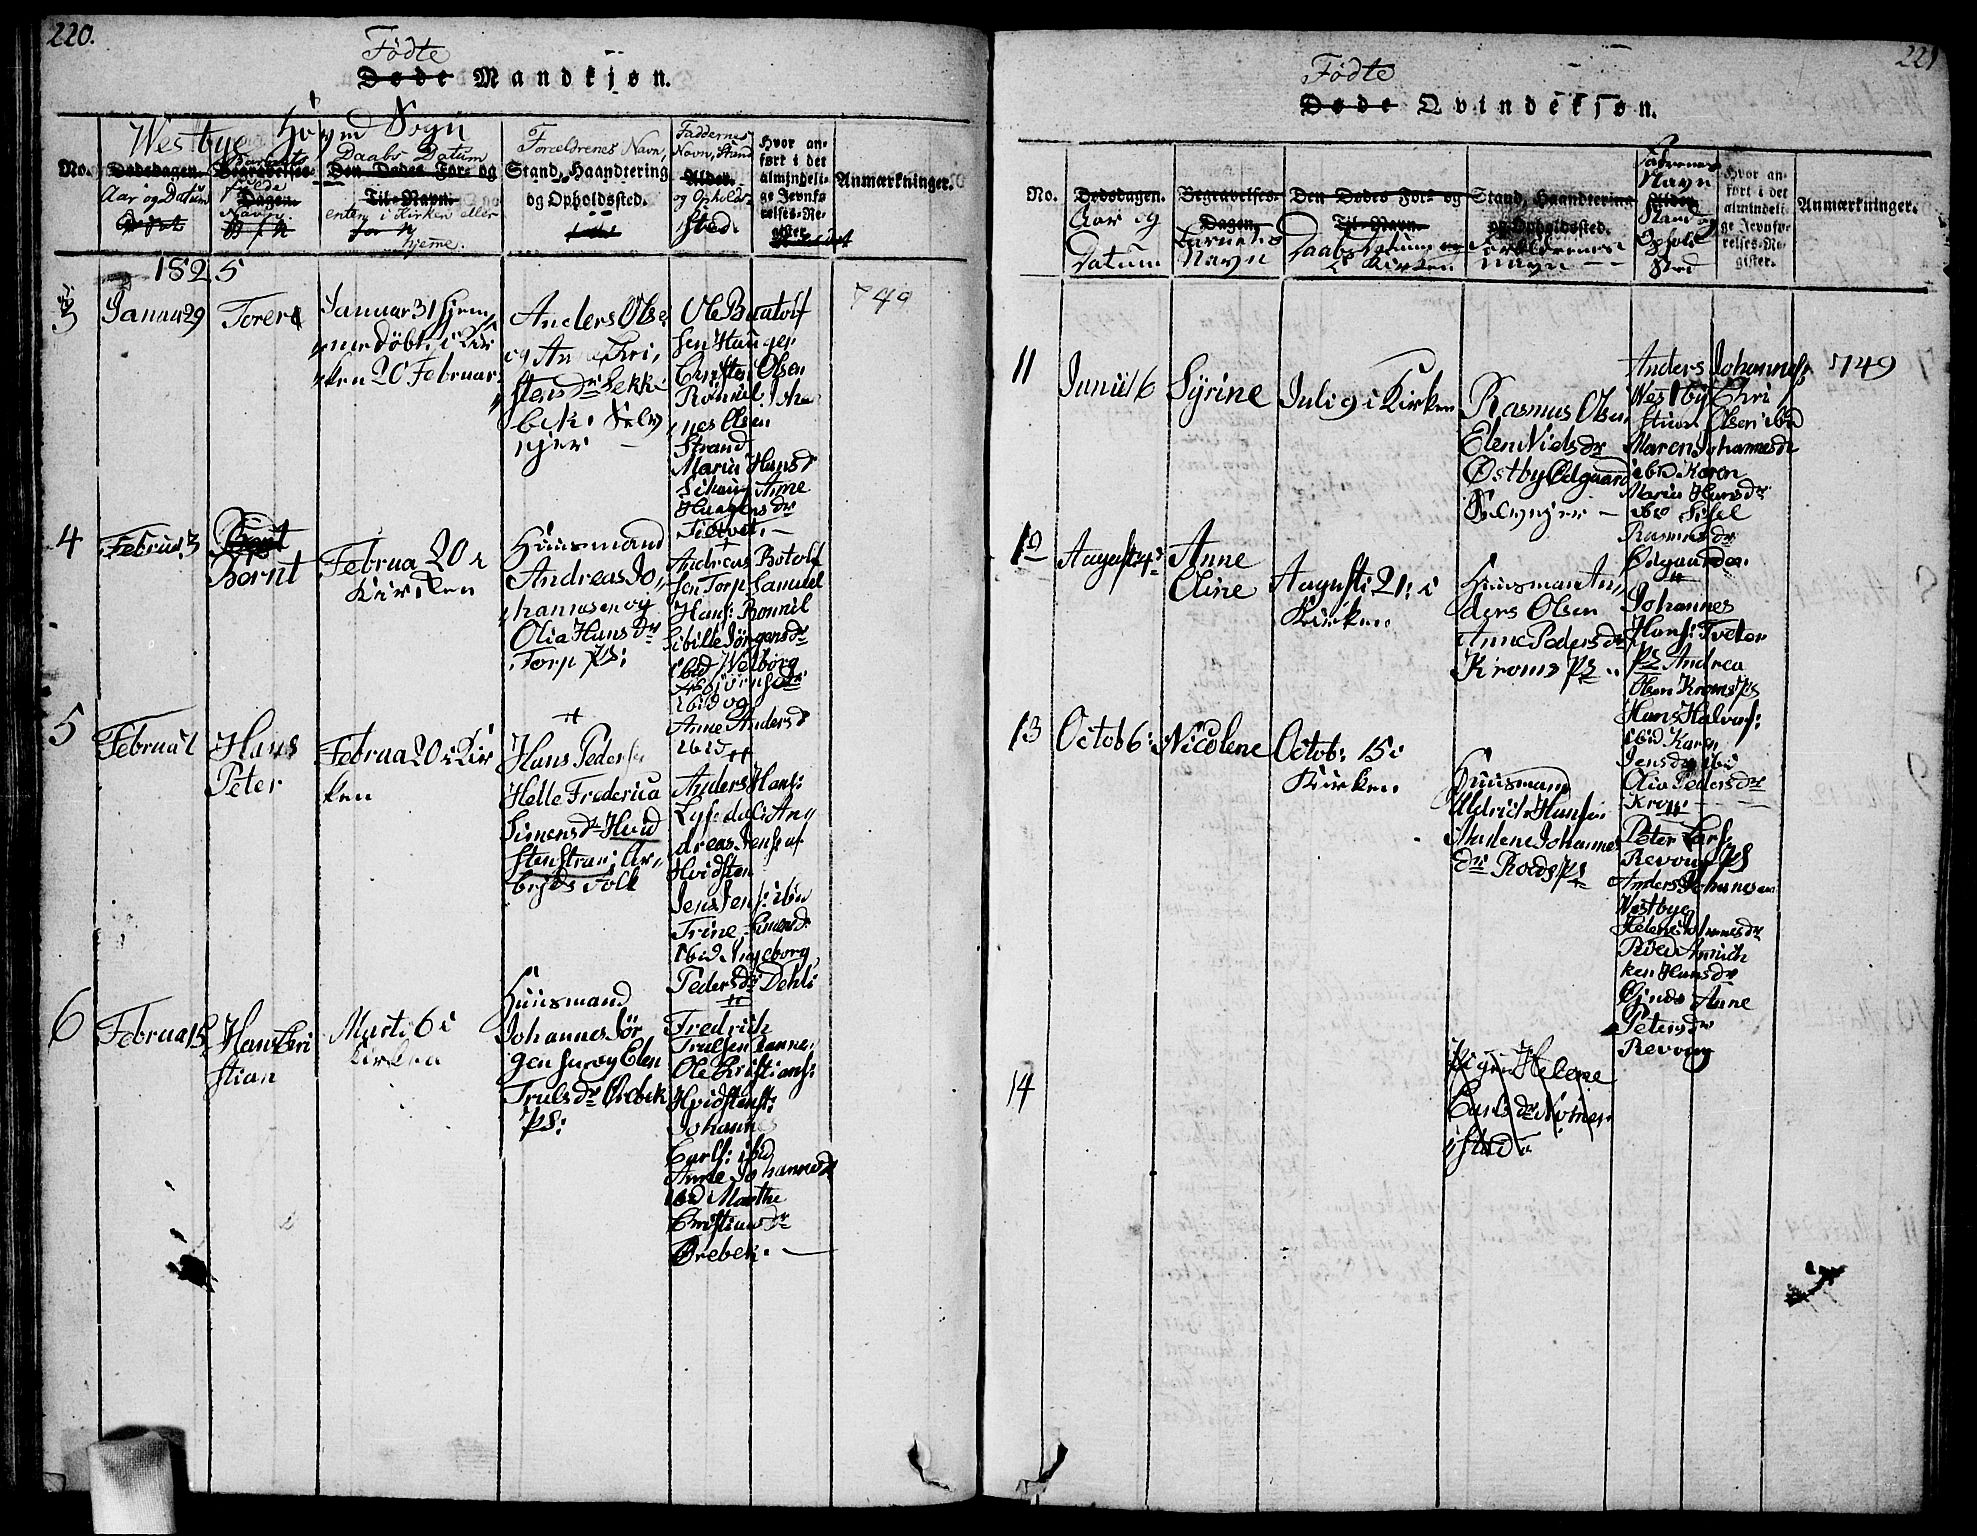 220.
Födte
Døde Mandkjøn.
Westbye Hoved Sogn
No.
Dødsdagen.
Aar og Datum
Begravelses-
Dagen.
Navn.
Daabs Datum
Den Dødes For- og
Til-Navn.
enten i Kirken eller
hjemme.
Forældrenes Navn,
Stand, Haandtering
og Opholdssted.
Faddernes
Navn, Stand
Alder.
og Opholds-
sted.
Hvor an-
ført i det
almindeli-
ge Jevnfø-
relses-Re-
gister.
Anmærkninger.
1825
3
Janua 29
Torer
Januar 31 hjem,
me döbt, i Kir
ken 20 Februar.
Anders Olse
og Anne Kri,
stensdr Sekke
bek
Ole Buntolf
sen Hauger
Christen Olsen
Ronnil Joha
nes Olsen
Strand
Maria Hansd
Anne
Haagensdr
740
4
Februa 3
Bernt
Bernt
Februa 20 i
Kirken
Huusmand
Andreas Jo,
hannesen og
Olia Hans dr
Torp Ps:
Andreas Botolf
sen Torp Samuel
Hans: Ronnil
Sibille Jörgensdr
ibid Welborg
Asbjörnsdr
ibid og
Anne Andersd
ibid
5
Februa 1
Hans
Peter
Februa 20 i Kir
ken
Hans Peders
Helle Frederica
Simensdr Hvid
sten Stran: Ar,
bejds Folk
Anders Hans:
Andreas Jens af
Hvidsten
Jens Jens: ibid
Trine Simensd
ibid Ingeborg
Pedersdr Dehli
6
Februa 15
Hans Cri
stian
Marti 6 i
Kirken
Huusmand
Johannes Jör
gensen og Elen
Trulsdr Örebek
Ps:
Fredrich
Trulsen
Ole Kristians:
Hvidsten
Johann
Carls: ibid
Anne Johannesd
ibid Marthe
Christians dr
Örebek.
221
Födte
Døde Qvindekjøn.
No.
Dødsdagen.
Aar og
Datum
Begravelses-
Dagen.
Barnets
Navn
Den Dødes For- og
Til-Navn.
Daabs Datum
i Kirken
Stand, Haandtering
og Opholdssted.
Forældrenes
Navn
Fadernes
Navn
Alder.
Stand og
Opholds
sted
Hvor an-
ført i det
almindeli-
ge Jevnfø-
relses-Re-
gister.
Anmærkninger.
11
Junii 16
Syrine
Juli 9 i Kirken
Rasmus Olsen
Elen Nielsdr
Østby Ødgaard
Anders Johannes,
Westby Chri
stian Olsen ibid
Maren Johannesdr
ibid Karen
Maria Hansdr
ibid Sisel
Rasmusdr
Ødgaarden
749
12
August 4
Anne
Oline
Augusti 21: i
Kirken
Huusman An,
ders Olsen
Anne Pedersdr
Krom Ps
Johannes
Hans: Tveter
Ps Andrea
Olsen Kroms Ps
Hans Halvors:
ibid Karen
Jensdr ibid
Olia Pedersdr
Krom
13
Octob 6:
Nicolene
Octob: 15 i
Kirken
Huusmand
Uldrich Hansen
Madene Johannes
dr Roeds Ps
Peter Lars:
Revoug Ps
Anders Johannesen
Westbye
Helene Johannesdr
Roed Annich
ken Hansdr
Anne
Petersdr
Revoug
14
Pigen Helene
Carlsdr